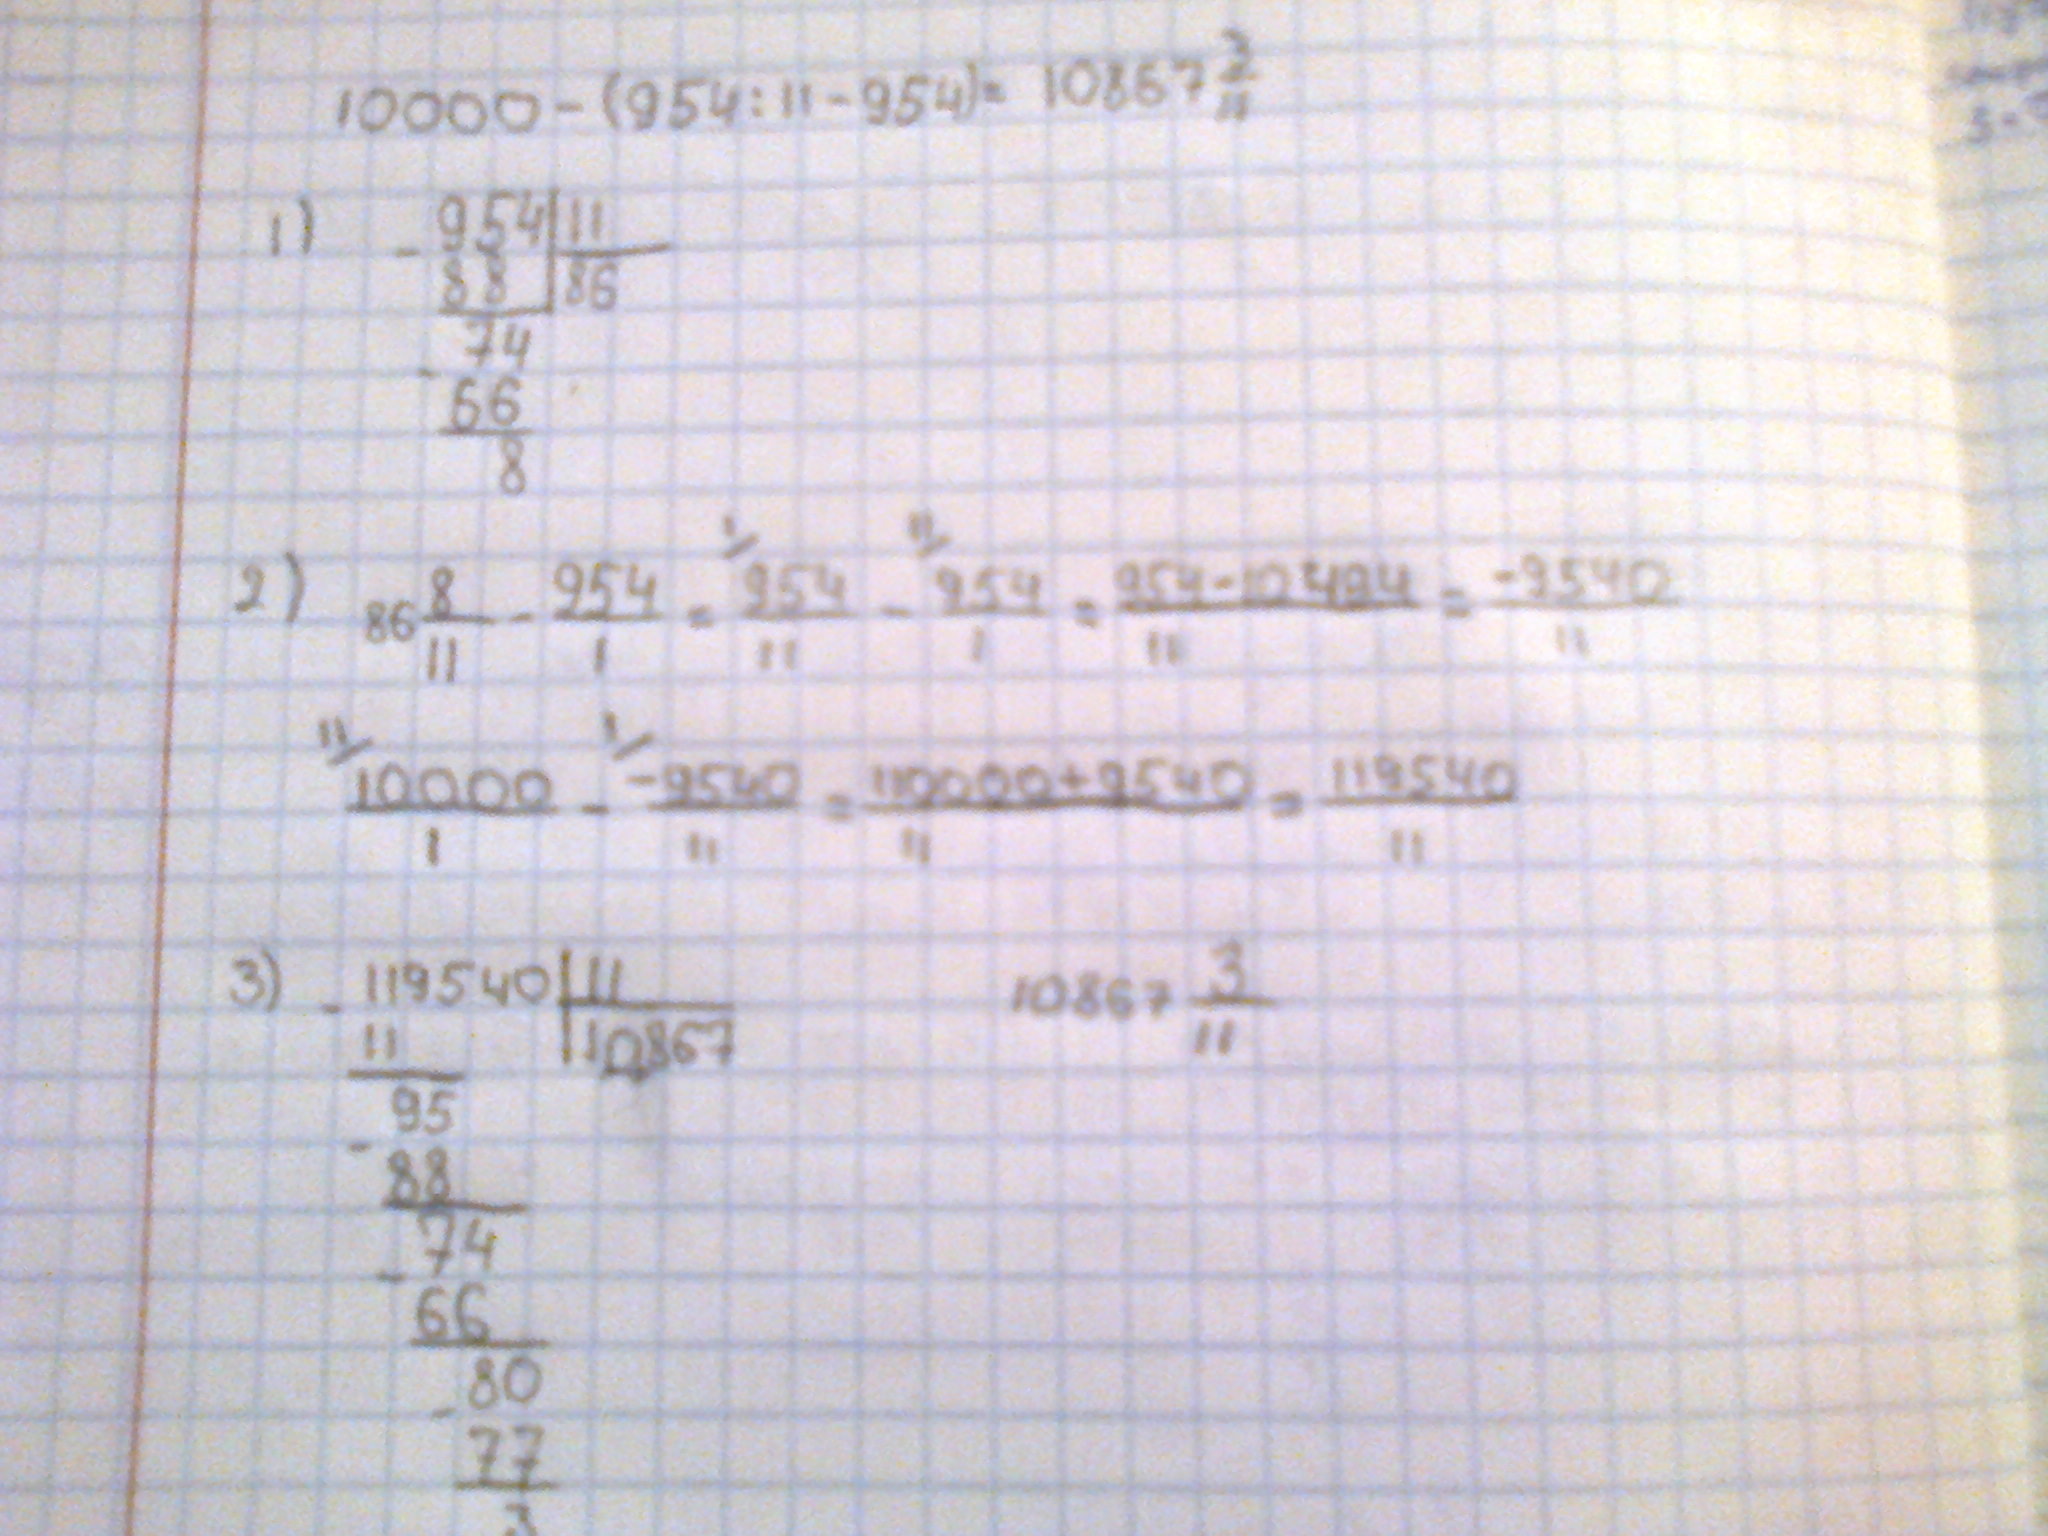 10000 - (954 : 11 - 954) = 10867 3/11
1) - 954 | 11
88 | 86
- 74
66
8
2) 86 8/11 - 954/1 = 954/11 - 954/1 = (954 - 10494)/11 = -9540/11
10000/1 - -9540/11 = (110000 + 9540)/11 = 119540/11
3) - 119540 | 11 10867 3/11
11 | 10867
- 95
88
- 74
66
- 80
77
3